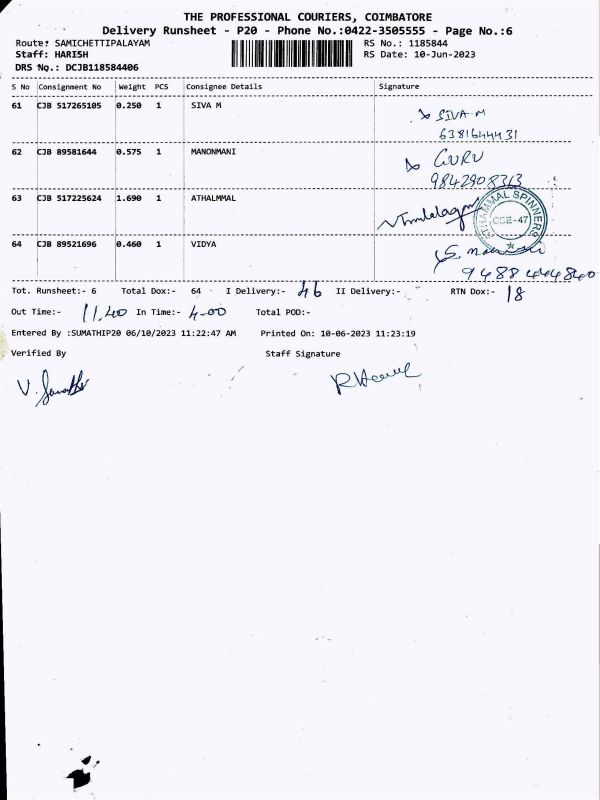 THE PROFESSIONAL COURIERS, COIMBATORE
Delivery Runsheet - P20 - Phone No.:0422-3505555 - Page No.:6
Route: SAMICHETTIPALAYAM RS No.: 1185844
Staff: HARISH RS Date: 10-Jun-2023
DRS No.: DCJB118584406
S No Consignment No Weight PCS Consignee Details Signature
61 CJB 517265105 0.250 1 SIVA M SIVA M
6381644431
62 CJB 89581644 0.575 1 MANONMANI GURU
9842908313
63 CJB 517225624 1.690 1 ATHALMMAL
ATHAMMAL SPINNERS
CBE-47
64 CJB 89521696 0.460 1 VIDYA
9488444840
Tot. Runsheet:- 6 Total Dox:- 64 I Delivery:- 46 II Delivery:- RTN Dox:- 18
Out Time:- 11.40 In Time:- 4-00 Total POD:-
Entered By :SUMATHIP20 06/10/2023 11:22:47 AM Printed On: 10-06-2023 11:23:19
Verified By Staff Signature